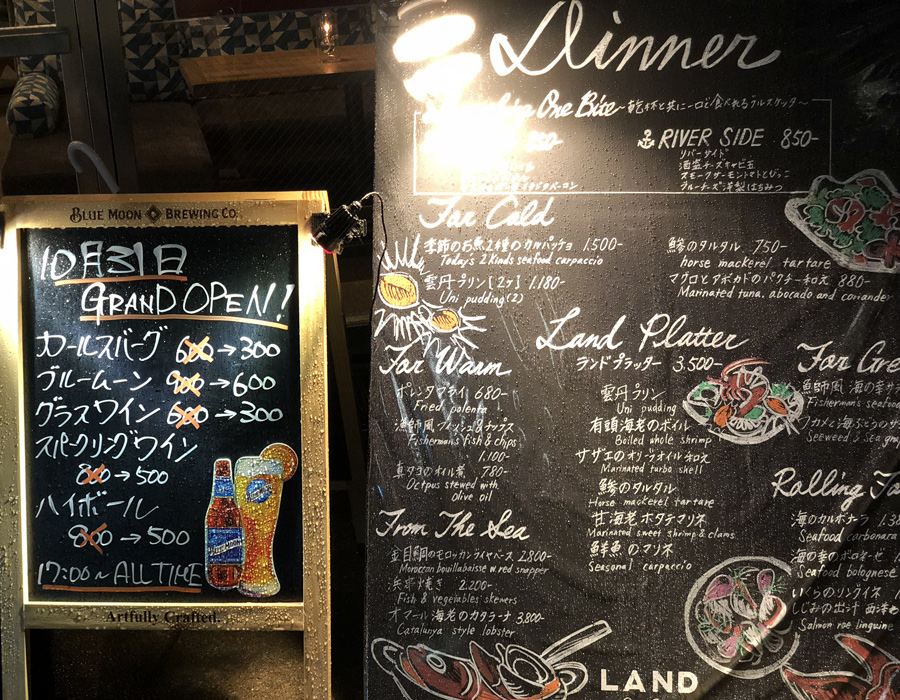 BLUE MOON BREWING CO.
10月31日
GRAND OPEN!
カールスバーグ 600→300
ブルームーン 900→600
グラスワイン 600→300
スパークリングワイン
800→500
ハイボール
800→500
17:00~ALL TIME
Artfully Crafted.
Dinner
One Bite ~乾杯と共に一口で食べれるブルスケッタ~
RIVER SIDE 850-
リバーサイド
酒盗チーズキャビ玉
スモークサーモントマトとびっこ
ブルーチーズ洋梨はちみつ
For Cold
季節のお魚2種のカルパッチョ 1.500-
Today's 2 kinds seafood carpaccio
雲丹プリン[2ヶ] 1.180-
Uni pudding(2)
鯵のタルタル 750-
horse mackerel tartare
マグロとアボカドのパクチー和え 880-
Marinated tuna. abocado and coriander
For Warm
ポレンタフライ 680-
Fried polenta
漁師風フィッシュ&チップス
Fisherman's fish & chips
1.100-
真ダコのオイル煮 780-
Octpus stewed with
olive oil
From The Sea
金目鯛のモロッカンブイヤベース 2.800-
Moroccan bouillabaisse w red snapper
浜串焼き 2.200-
Fish & vegetables skewers
オマール海老のカタラーナ 3.800-
Catalunya style lobster
Land Platter
ランドプラッター 3.500-
雲丹プリン
Uni pudding
有頭海老のボイル
Boiled whole shrimp
サザエのオリーブオイル和え
Marinated turbo shell
鯵のタルタル
Horse mackerel tartare
甘海老ホタテマリネ
Marinated sweet shrimp & clams
鮮魚のマリネ
Seasonal carpaccio
For Gre
漁師風 海の幸サラ
Fisherman's seafood
ワカメと海ぶどうのサ
Seeweed & sea gra
Rolling
海のカルボナーラ 1.38
Seafood carbonara
海の幸のボロネーゼ
Seafood bolognese
いくらのリングイネ 1.
しじみの出汁
Salmon roe linguine
LAND